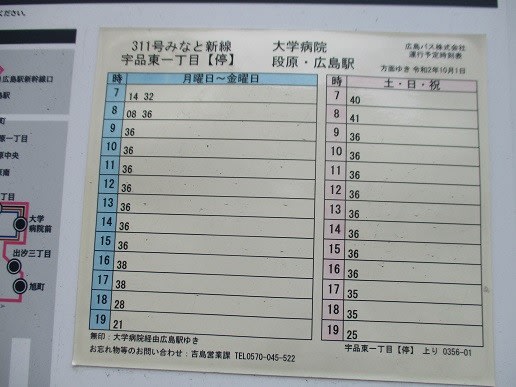 ください。
広島駅新幹線口
島駅
町
一丁目
原中央
原南
丁目
大学
病院前
出汐三丁目
旭町
311号みなと新線
宇品東一丁目【停】
大学病院
段原・広島駅
広島バス株式会社
運行予定時刻表
方面ゆき 令和2年10月1日
時 月曜日~金曜日
7 14 32
8 08 36
9 36
10 36
11 36
12 36
13 36
14 36
15 36
16 38
17 38
18 28
19 21
時 土・日・祝
7 40
8 41
9 36
10 36
11 36
12 36
13 36
14 36
15 36
16 36
17 35
18 35
19 25
無印:大学病院経由広島駅ゆき
お忘れ物等のお問い合わせ:吉島営業課 TEL0570-045-522
宇品東一丁目【停】 上り 0356-01